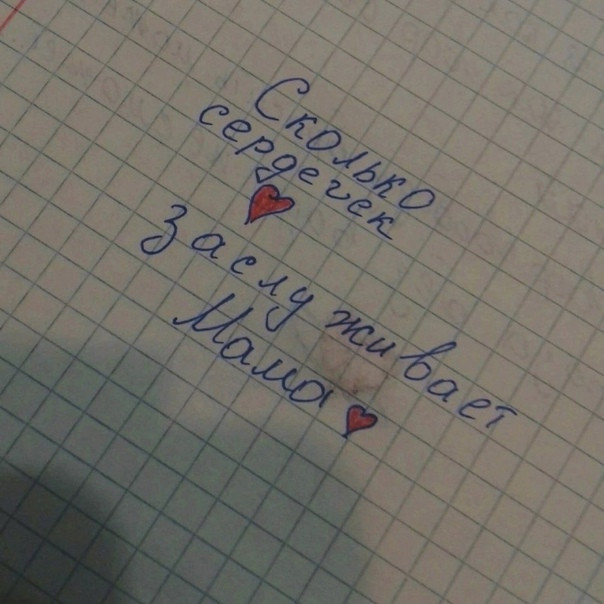 Сколько
сердечек
заслуживает
Мама